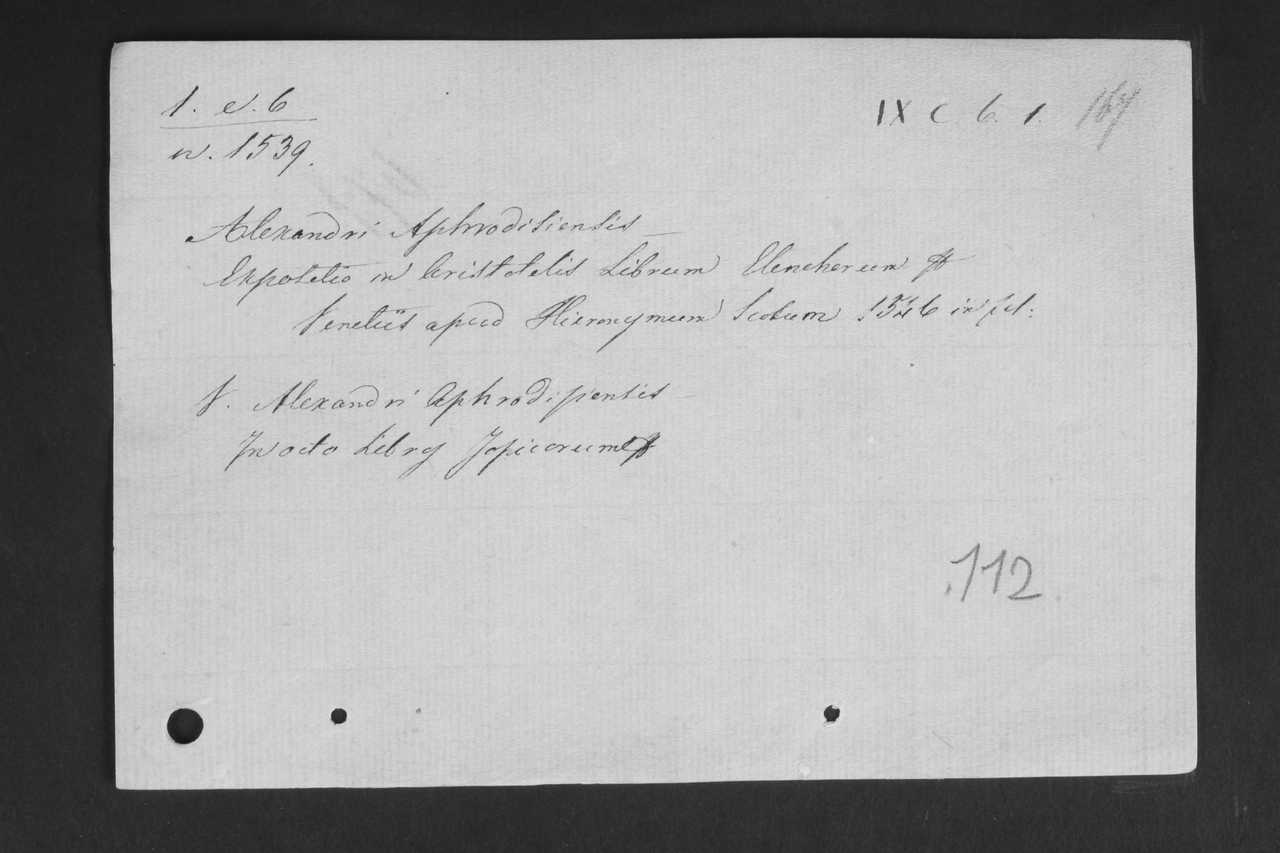 1. e. 6
n. 1539.
IX C. 6. 1.
Alexandri Aphrodisiensis
Expositio in Aristotelis Librum Elenchorum
Venetiis apud Hieronymum Scotum 1546 in fol:
V. Alexandri Aphrodisiensis
In octo Libros Topicorum
112